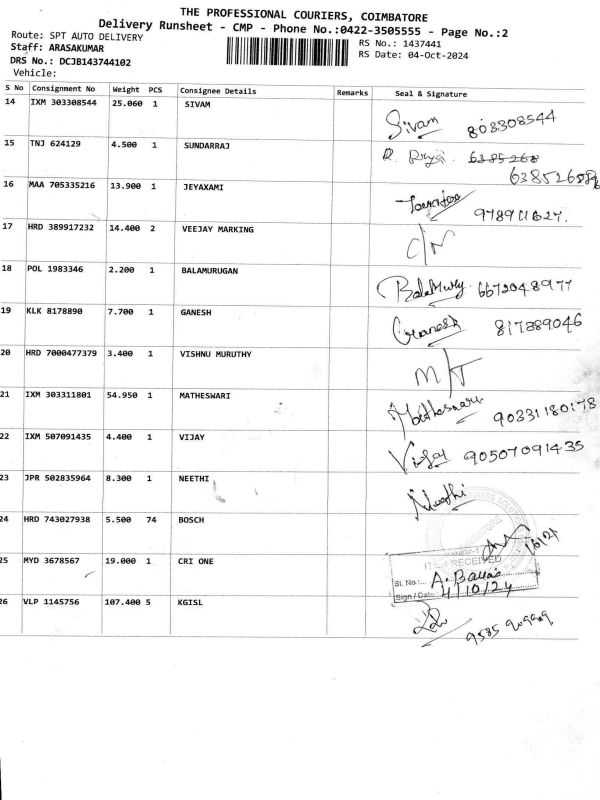 THE PROFESSIONAL COURIERS, COIMBATORE
Delivery Runsheet - CMP - Phone No.:0422-3505555 - Page No.:2
Route: SPT AUTO DELIVERY
RS No.: 1437441
Staff: ARASAKUMAR
RS Date: 04-Oct-2024
DRS No.: DCJB143744102
Vehicle:
S No Consignment No Weight PCS Consignee Details Remarks Seal & Signature
14 IXM 303308544 25.060 1 SIVAM Sivam 808308544
15 TNJ 624129 4.500 1 SUNDARRAJ R.
16 MAA 705335216 13.900 1 JEYAXAMI
17 HRD 389917232 14.400 2 VEEJAY MARKING C/N
18 POL 1983346 2.200 1 BALAMURUGAN 6672048977
19 KLK 8178890 7.700 1 GANESH Ganesh 817889046
20 HRD 7000477379 3.400 1 VISHNU MURUTHY M/T
21 IXM 303311801 54.950 1 MATHESWARI 90331180178
22 IXM 507091435 4.400 1 VIJAY Vijay 90507091435
23 JPR 502835964 8.300 1 NEETHI Neethi
24 HRD 743027938 5.500 74 BOSCH
25 MYD 3678567 19.000 1 CRI ONE
RECEIVED
Sl. No :
Sign / Date : 4/10/24
26 VLP 1145756 107.400 5 KGISL